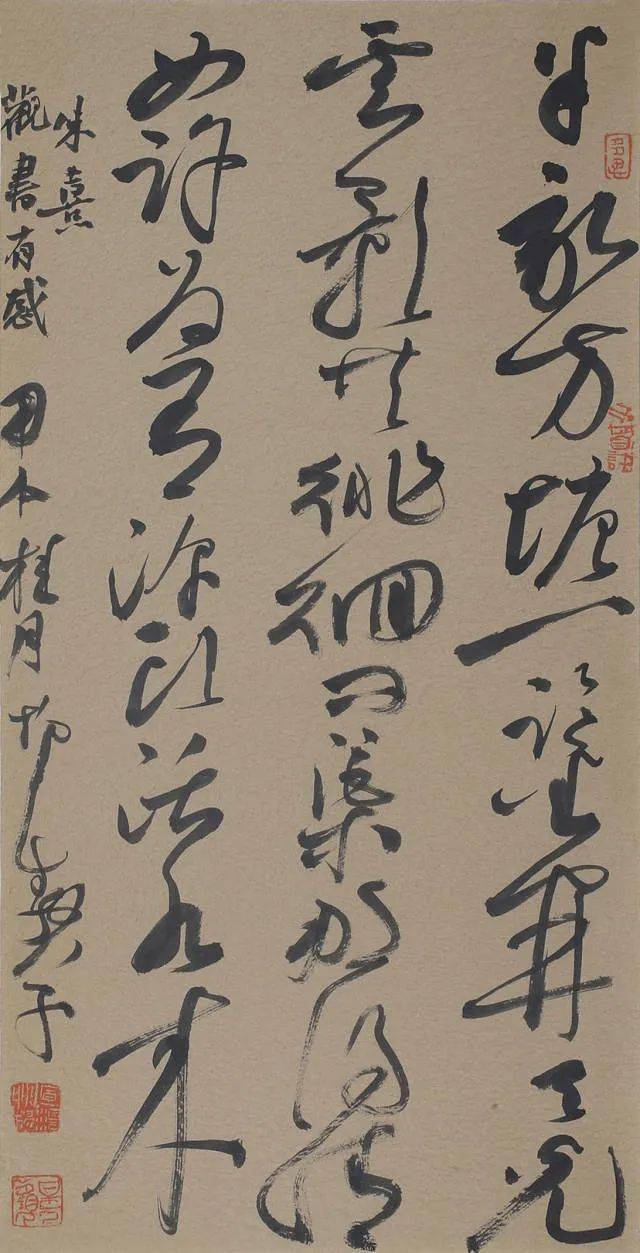 半畝方塘一鑑開天光
云影共徘徊問渠那得清
如許為有源頭活水來
朱熹
觀書有感 甲午桂月